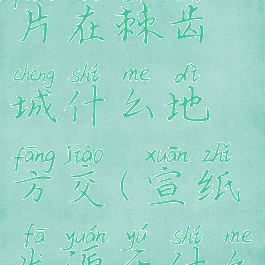 片在棘齿
chéng shí me dì
城什么地
fāng jiāo xuān zhǐ
方交（宣纸
fā yuán yú shí me
发源于什么